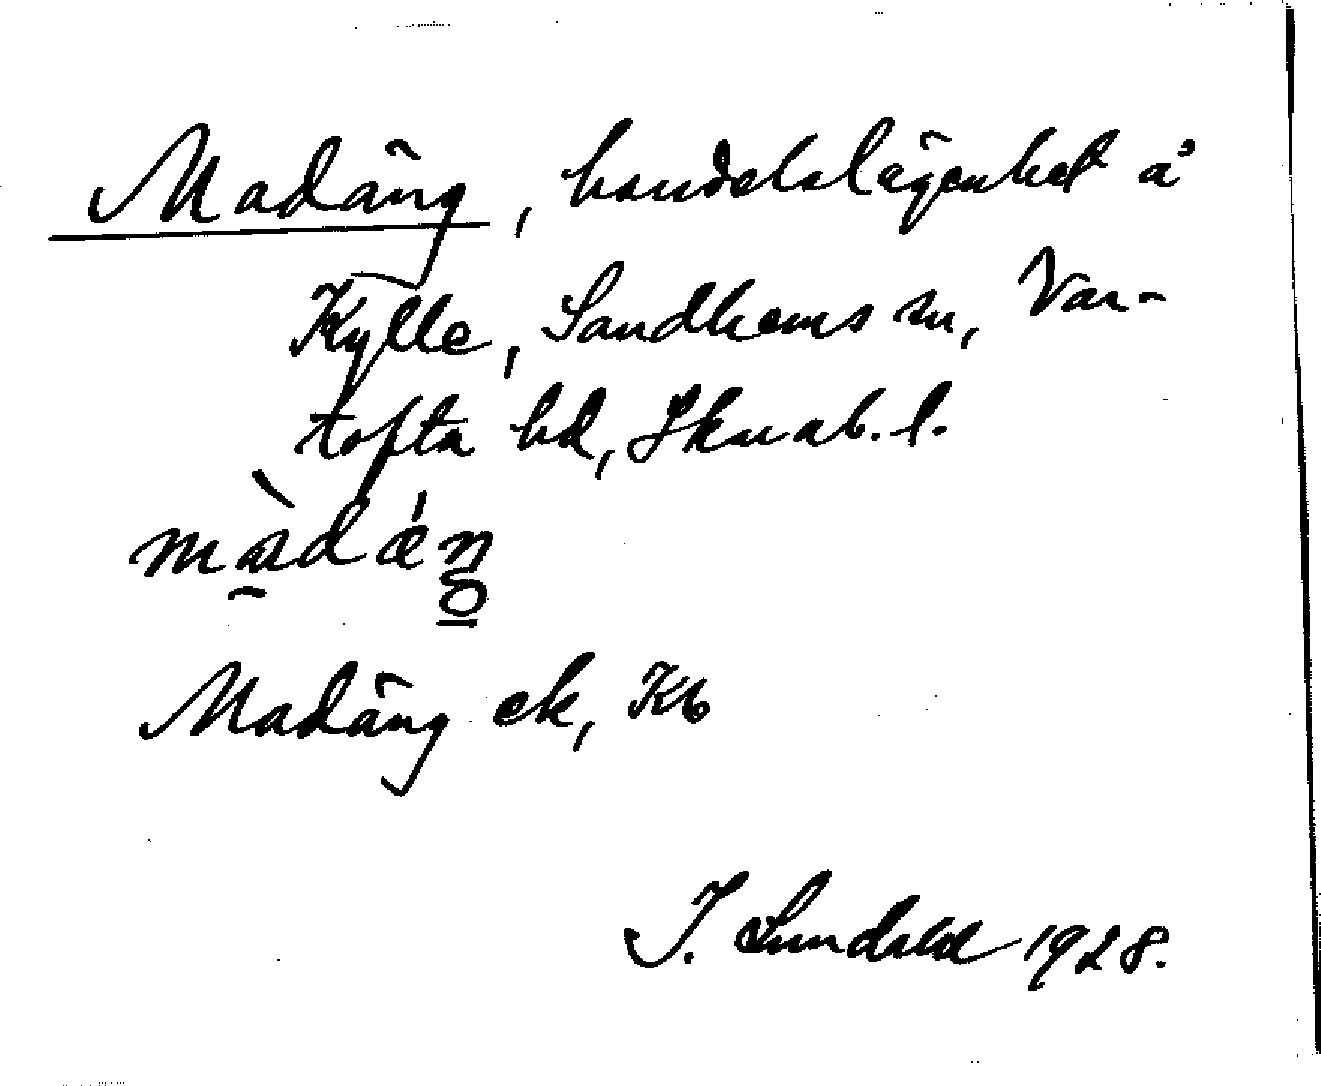 Madäng, handelslägenhet å
Kylle, Sandhems sn, Var-
tofta hd, Skarab. l.
màdǽŋ
Madäng ek, Kb
I. Lundahl 1928.